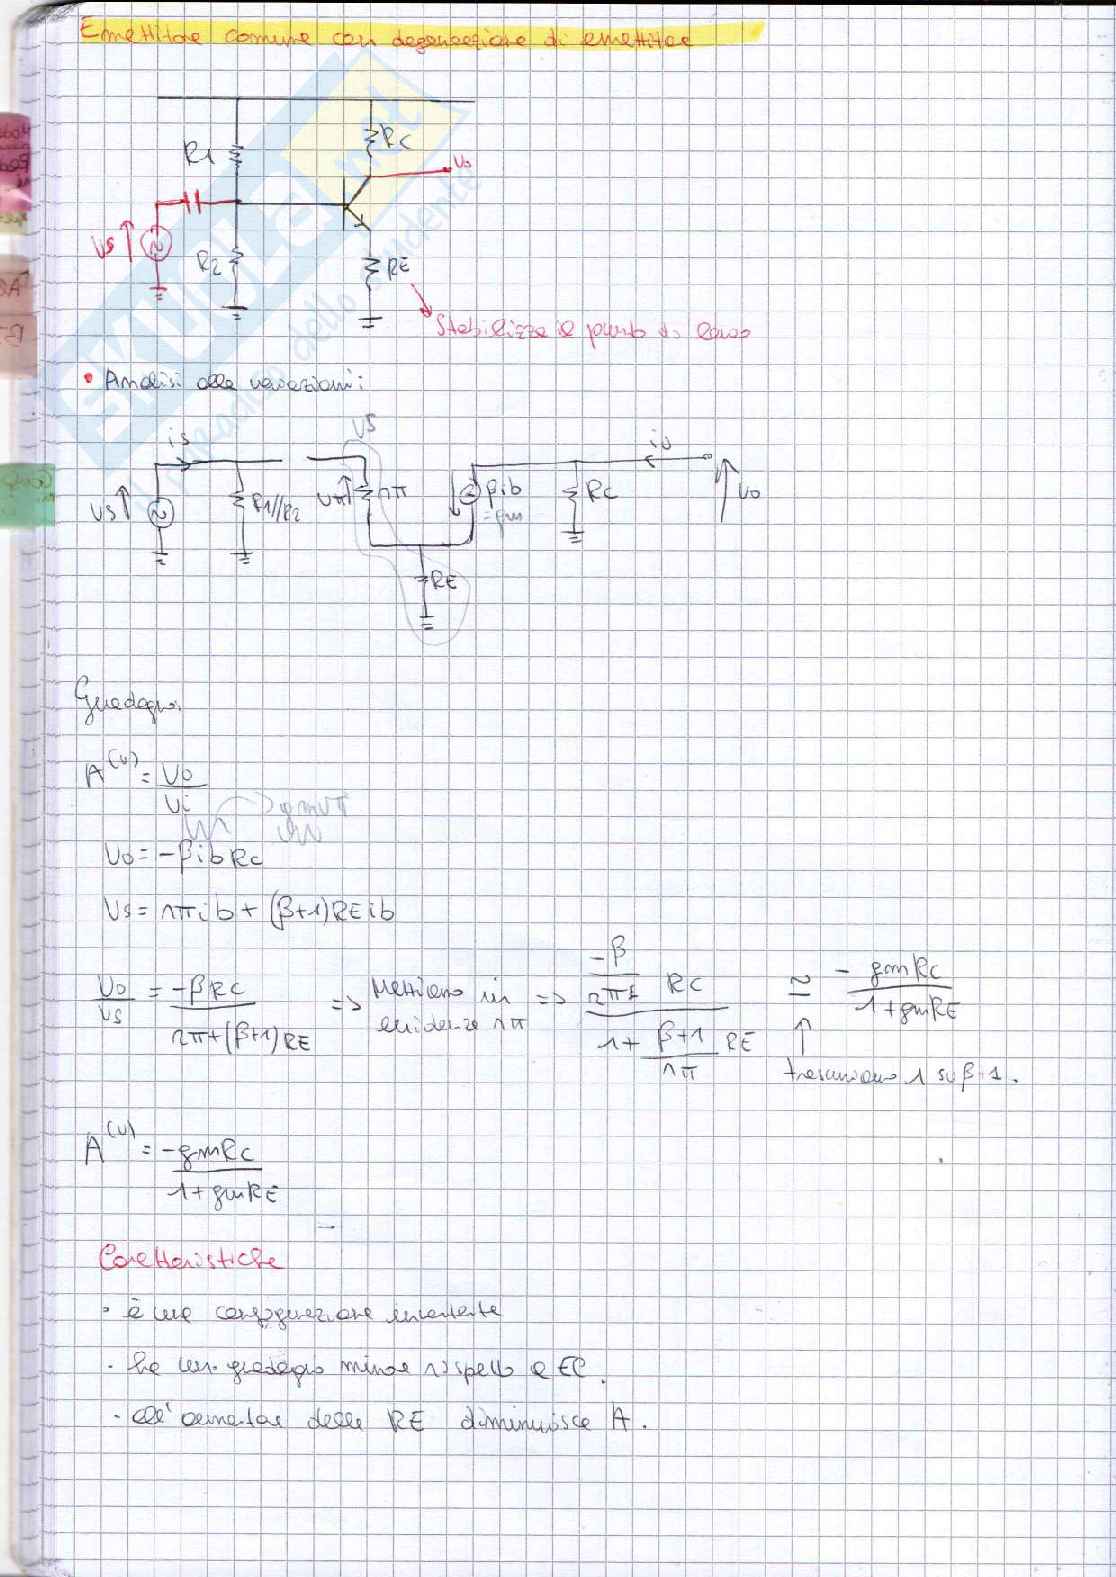 Emettitore comune con degenerazione di emettitore
R1
RC
Vo
Vs
R2
RE
Stabilizza il punto di lavoro
• Analisi alle variazioni:
is
vs
io
vs
R1//R2
vπ
rπ
βib
=gm
RC
vo
RE
Guadagni
A(v) = vo
vi
gmvπ
vo = -βib RC
vs = rπib + (β+1)REib
vo = -βRC => Mettiamo in => -β/rπ RC ≃ - gmRC
vs rπ+(β+1)RE evidenza rπ 1+ β+1/rπ RE 1+gmRE
trascuriamo 1 su β+1.
A(v) = -gmRC
1+gmRE
Caratteristiche
• è una configurazione invertente
• ha un guadagno minore rispetto a EC.
• all'aumentare della RE diminuisce A.
SKUOLA.net